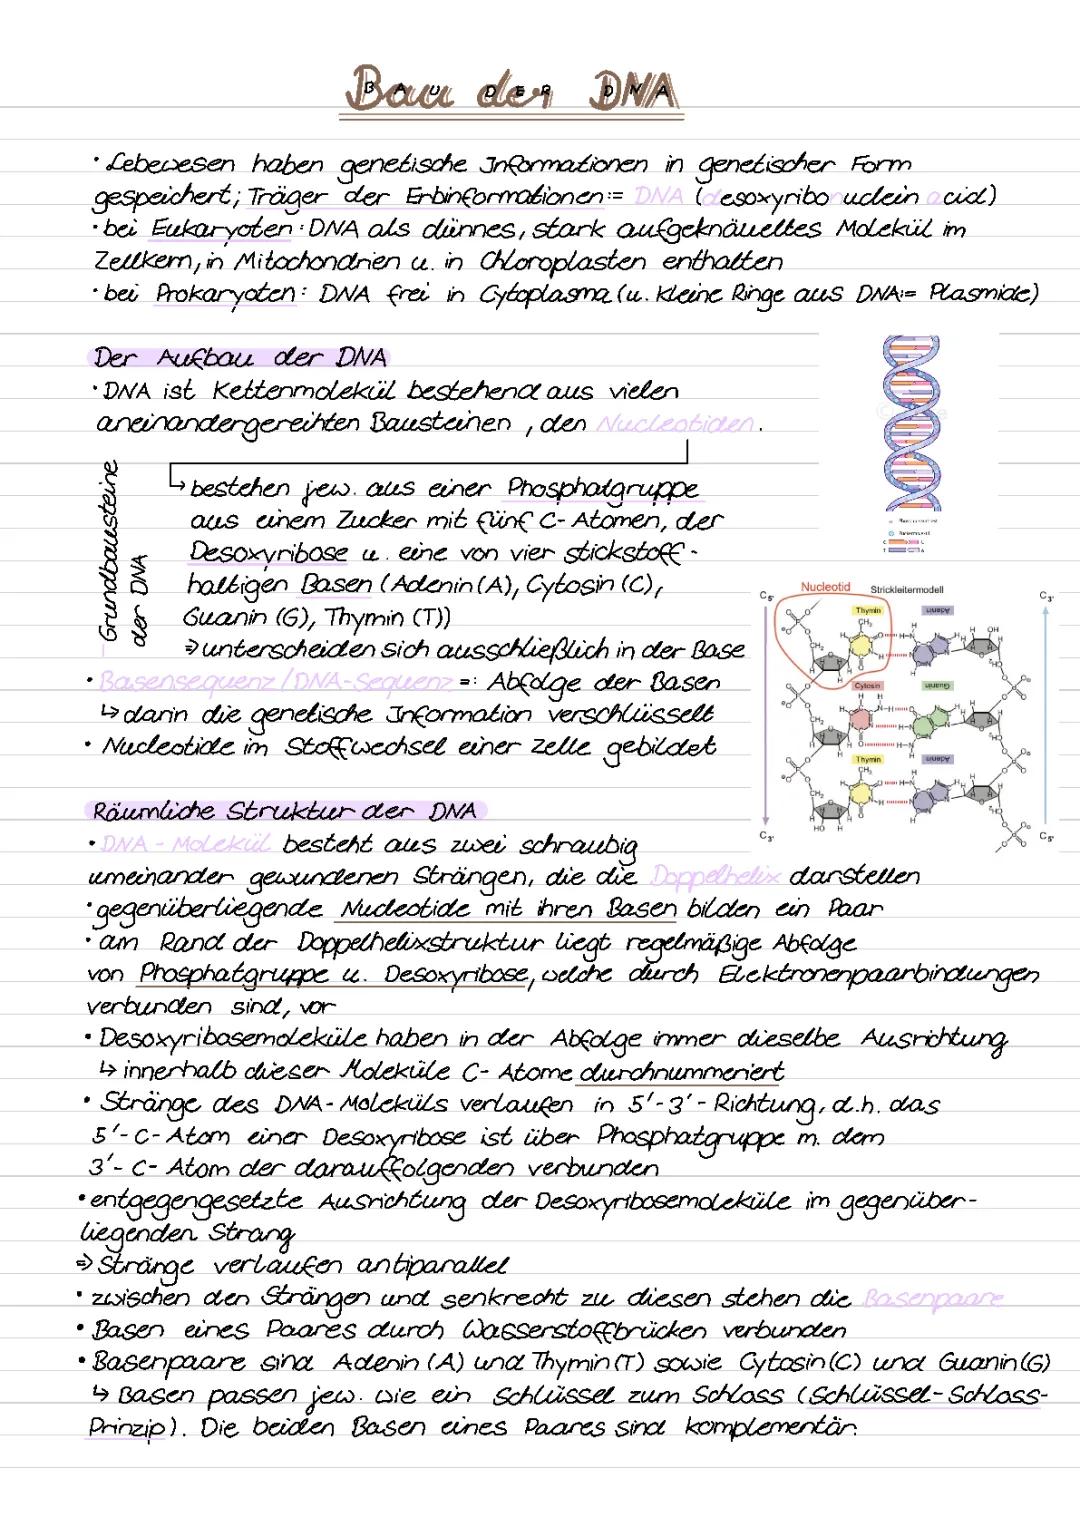 Bau der DNA
BAU DER DNA
• Lebewesen haben genetische Informationen in genetischer Form
gespeichert; Träger der Erbinformationen:= DNA (desoxyribonuclein acid)
• bei Eukaryoten: DNA als dünnes, stark aufgeknäueltes Molekül im
Zellkern, in Mitochondrien u. in Chloroplasten enthalten
• bei Prokaryoten: DNA frei in Cytoplasma (u. kleine Ringe aus DNA:= Plasmide)
Der Aufbau der DNA
• DNA ist Kettenmolekül bestehend aus vielen
aneinandergereihten Bausteinen, den Nucleotiden.
Grundbausteine
der DNA
↳ bestehen jew. aus einer Phosphatgruppe
aus einem Zucker mit fünf C-Atomen, der
Desoxyribose u. eine von vier stickstoff-
haltigen Basen (Adenin (A), Cytosin (C),
Guanin (G), Thymin (T))
⇒ unterscheiden sich ausschließlich in der Base
• Basensequenz/DNA-Sequenz =: Abfolge der Basen
↳ darin die genetische Information verschlüsselt
• Nucleotide im Stoffwechsel einer Zelle gebildet
Nucleotid
Strickleitermodell
C5'
C3'
Thymin
Adenin
Cytosin
Guanin
Thymin
Adenin
C3'
C5'
Räumliche Struktur der DNA
• DNA-Molekül besteht aus zwei schraubig
umeinander gewundenen Strängen, die die Doppelhelix darstellen
• gegenüberliegende Nucleotide mit ihren Basen bilden ein Paar
• am Rand der Doppelhelixstruktur liegt regelmäßige Abfolge
von Phosphatgruppe u. Desoxyribose, welche durch Elektronenpaarbindungen
verbunden sind, vor
• Desoxyribosemoleküle haben in der Abfolge immer dieselbe Ausrichtung
↳ innerhalb dieser Moleküle C-Atome durchnummeriert
• Stränge des DNA-Moleküls verlaufen in 5'-3'-Richtung, d.h. das
5'-C-Atom einer Desoxyribose ist über Phosphatgruppe m. dem
3'-C-Atom der darauffolgenden verbunden
• entgegengesetzte Ausrichtung der Desoxyribosemoleküle im gegenüber-
liegenden Strang
⇒ Stränge verlaufen antiparallel
• zwischen den Strängen und senkrecht zu diesen stehen die Basenpaare
• Basen eines Paares durch Wasserstoffbrücken verbunden
• Basenpaare sind Adenin (A) und Thymin (T) sowie Cytosin (C) und Guanin (G)
↳ Basen passen jew. wie ein Schlüssel zum Schloss (Schlüssel-Schloss-
Prinzip). Die beiden Basen eines Paares sind komplementär.